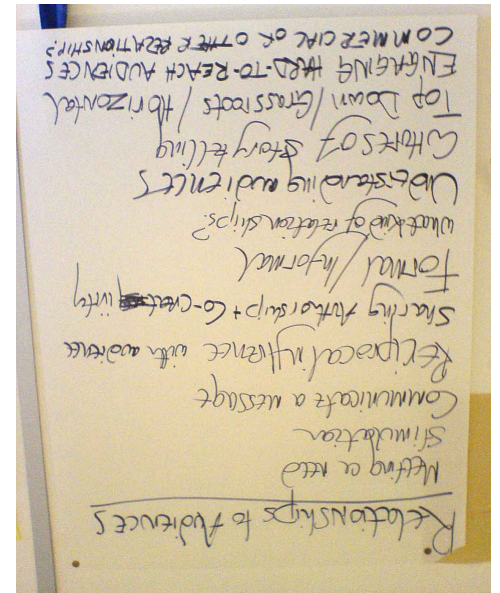 RELATIONSHIPS to AUDIENCES
Meeting a need
Stimulation
Communicate a message
Reciprocal influence with audience
Sharing Authorship + Co-creating with
Formal / Informal
What kind of relationships?
Understanding audiences
of Storytelling
TOP DOWN / GRASSROOTS / HORIZONTAL
ENGAGING HARD-TO-REACH AUDIENCES
COMMERCIAL OR OTHER RELATIONSHIP?